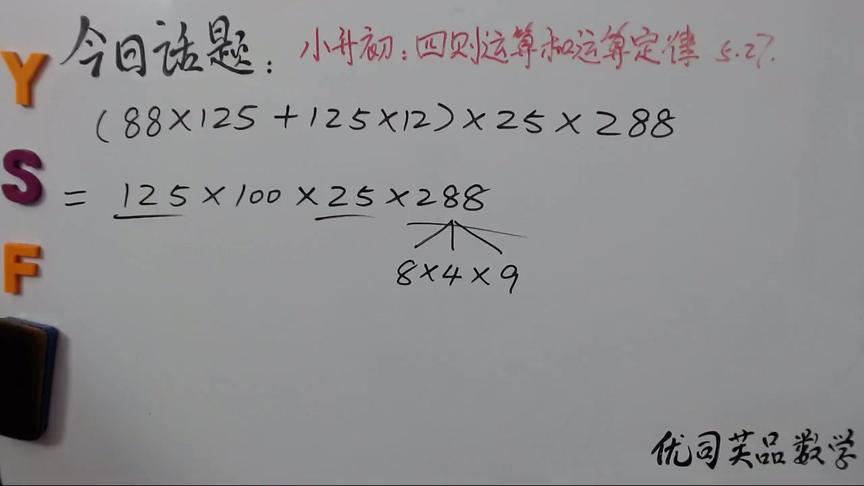 今日话题：小升初：四则运算和运算定律 5.27.
(88×125+125×12)×25×288
=125×100×25×288
8×4×9
Y
S
F
优司芙品数学